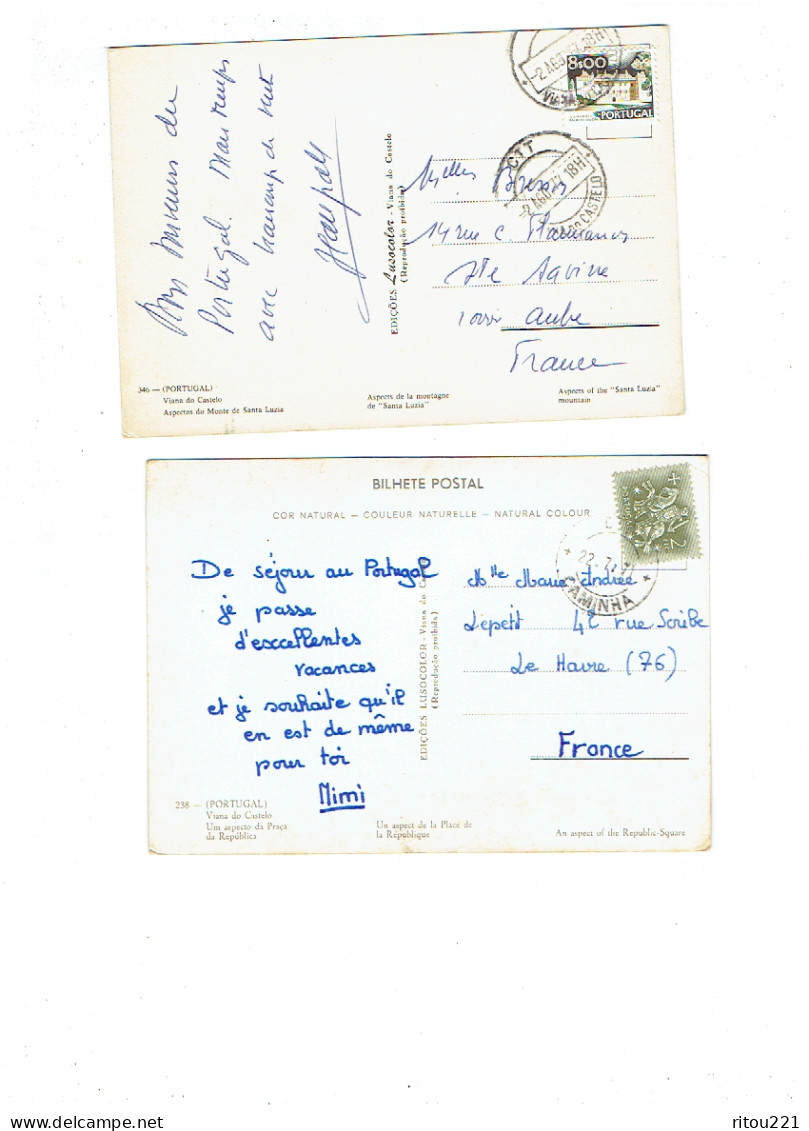 Portugal.
avec beaucoup de vent
EDIÇÕES Lusocolor - Viana do Castelo
(Reprodução proibida)
8$00
PORTUGAL
CTT
18H
Aube
France
346 — (PORTUGAL)
Viana do Castelo
Aspectos do Monte de Santa Luzia
Aspects de la montagne
de "Santa Luzia"
Aspects of the "Santa Luzia"
mountain
BILHETE POSTAL
COR NATURAL — COULEUR NATURELLE — NATURAL COLOUR
De séjour au Portugal
je passe
d'excellentes
vacances
et je souhaite qu'il
en est de même
pour toi
Mimi
EDIÇÕES LUSOCOLOR - Viana do
(Reprodução proibida)
CAMINHA
Mlle Marie Andrée
Lepetit 42 rue Scribe
Le Havre (76)
France
238 — (PORTUGAL)
Viana do Castelo
Um aspecto da Praça
da República
Un aspect de la Place de
la République
An aspect of the Republic-Square
ritou221